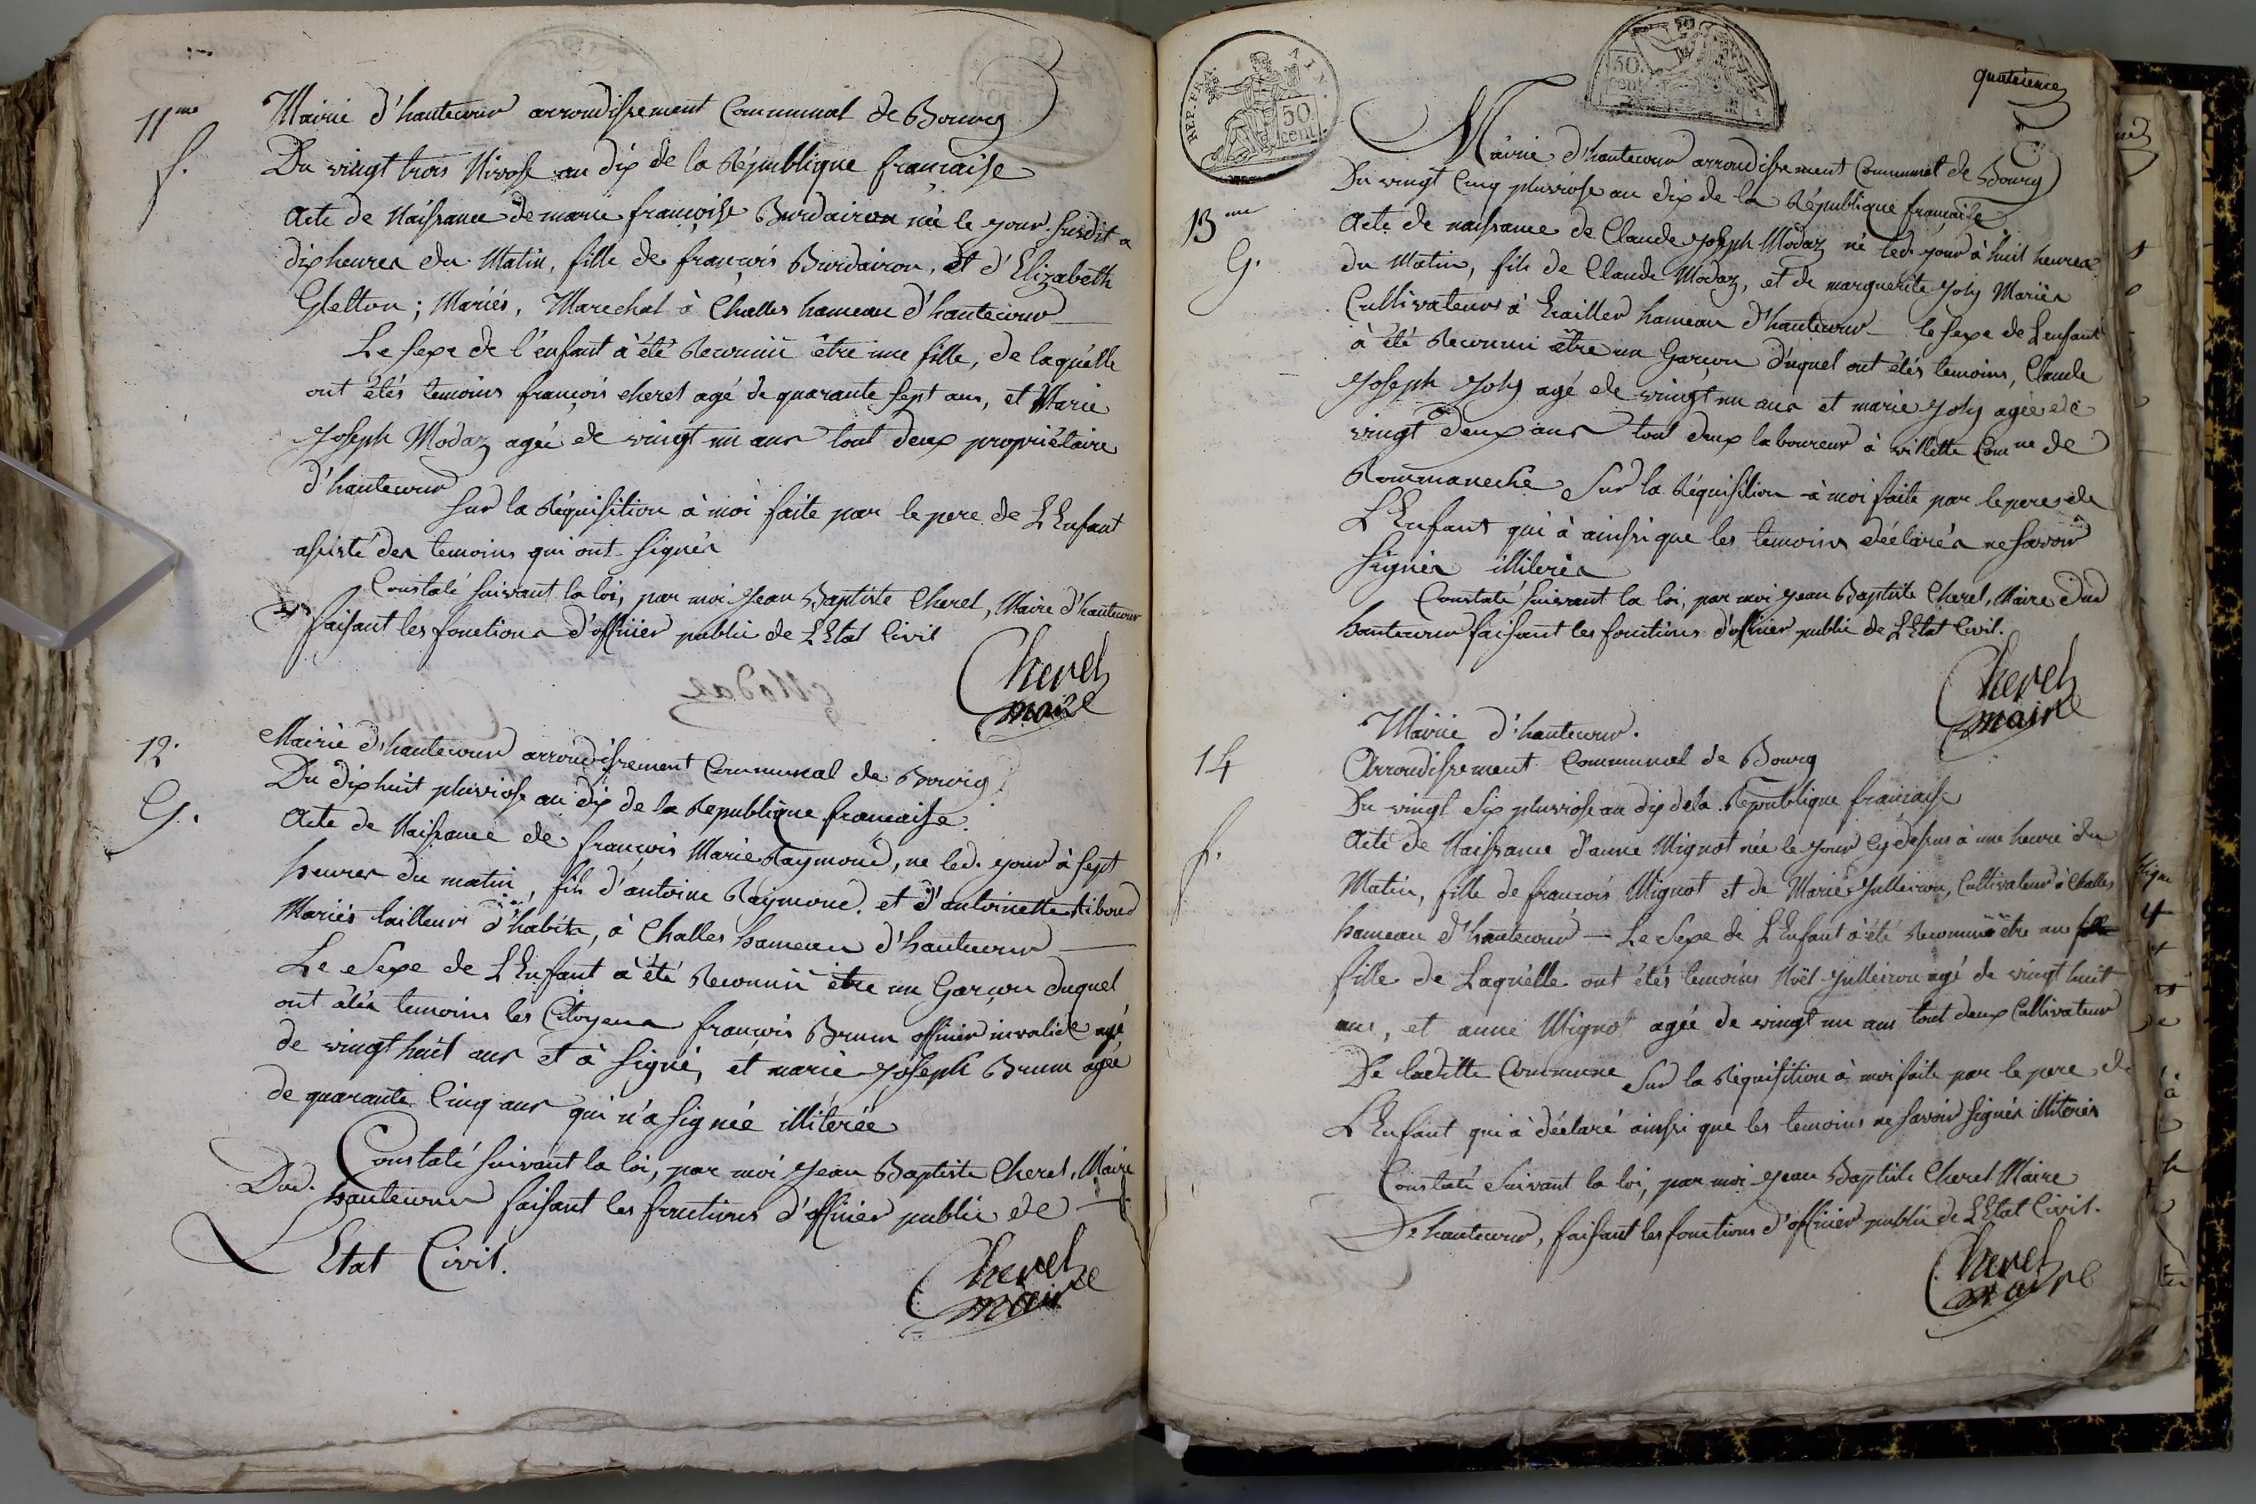 11me
f.
Mairie d'hautecour arrondissement Communal de Bourg
Du vingt trois Nivose an dix de la République française
Acte de Naissance de marie françoise Burdairon née le jour susdit a
dix heures du Matin, fille de françois Burdairon, et d'Elizabeth
Gletton ; Mariés, Marechal à Challes hameau d'hautecour
Le sexe de l'enfant à été Reconnü être une fille, de laquelle
ont étés temoins françois cherel agé de quarante sept ans, et Marie
Joseph Modaz agée de vingt un ans tout deux propriétaire
d'hautecour
sur la Réquisition à moi faite par le pere de L'Enfant
assisté des temoins qui ont signés
Constaté suivant la loi, par moi Jean Baptiste Cherel, Maire d'hautecour
faisant les fonctions d'officier public de L'Etat Civil
Cherel
maire
12.
G.
Mairie d'hautecour arrondissement Communal de Bourg
Du dix huit pluviose an dix de la Republique francaise.
Acte de Naissance de françois Marie Raymond, ne led. jour à sept
heures du matin, fils d'antoine Raimond. et d'antoinette Riboud
Mariés tailleur d'habits, à Challes hameau d'hautecour
Le Sexe de L'Enfant à été Reconnü être un Garçon duquel
ont étés temoins les Citoyens françois Brunn officier invalide agé
de vingt huit ans et à signé, et marie Joseph Brunn agée
de quarante Cinq ans qui n'a signée illiterée
Constaté suivant la loi, par moi Jean Baptiste Cherel, Maire
Dud. hautecour faisant les fonctions d'officier public de
L'Etat Civil.
Cherel
maire
REP. FRA. AIN.
50
cent
50.
cent
quaterience
Mairie d'hautecour arrondissement Communal de Bourg
Du vingt Cinq pluviose an dix de la République française
13me
G.
Acte de naissance de Claude Joseph Modaz né led. jour à huit heures
du Matin, fils de Claude Modaz, et de marguerite Joly Mariés
Cultivateurs à hameau d'hautecour le sexe de L'enfant
à été Reconnu être un Garçon duquel ont étés temoins, Claude
Joseph Joly agé de vingt un ans et marie Joly agée de
vingt deux ans tout deux laboureur à villette Comne de
Rommaneche Sur la Réquisition à moi faite par le pere de
L'Enfant qui à ainsi que les temoins déclarés ne savoir
signés illiterés
Constaté suivant la loi, par moi Jean Baptiste Cherel, Maire dud
hautecour faisant les fonctions d'officier public de L'Etat Civil.
Cherel
maire
14
f.
Mairie d'hautecour.
Arrondissement Communal de Bourg
Du vingt Six pluviose an dix de la République française
Acte de Naissance d'anne Mignot née le jour cy dessus à une heure du
Matin, fille de françois Mignot et de Marie Julleiron, Cultivateur à Challes
hameau d'hautecour — Le Sexe de L'Enfant à été Reconnü être une
fille de Laquelle ont étés temoins Noël Julleiron agé de vingt huit
ans, et anne Mignot agée de vingt un ans tout deux Cultivateur
De laditte Commune Sur la Réquisition à moi faite par le pere de
L'Enfant qui à déclaré ainsi que les temoins ne savoir signés illiterés
Constaté suivant la loi, par moi Jean Baptiste Cherel Maire
De hautecour, faisant les fonctions d'officier public de L'Etat Civil.
Cherel
maire